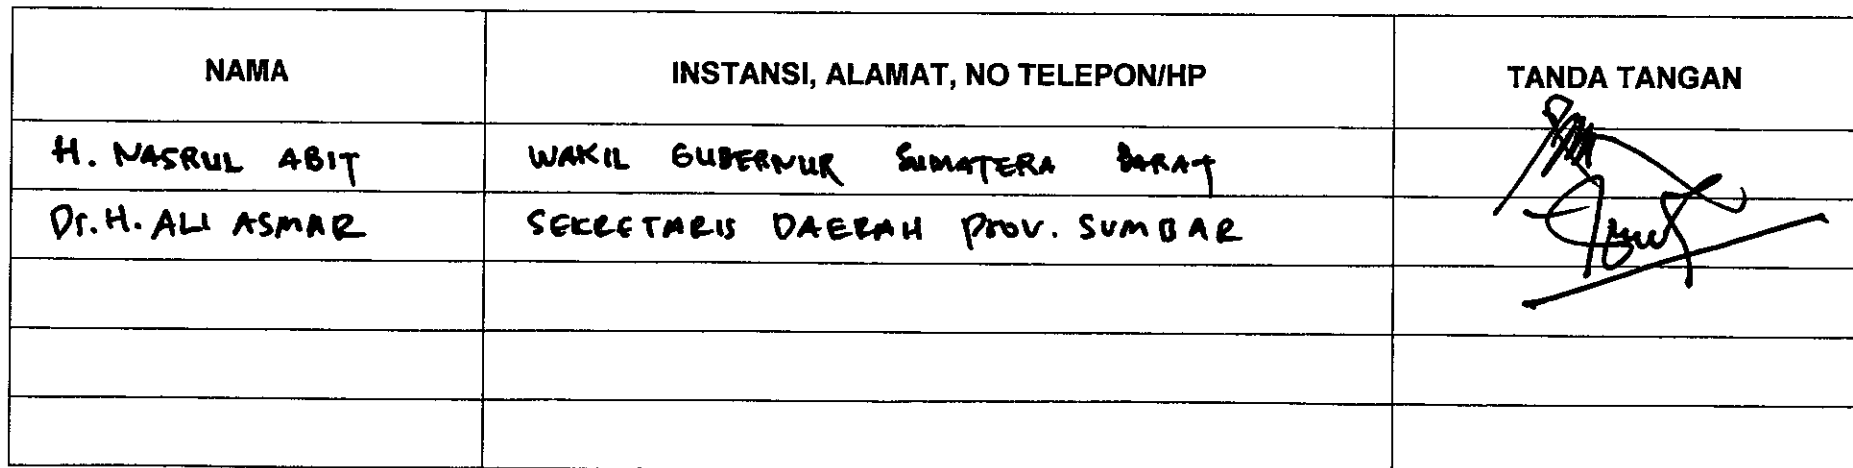 NAMA INSTANSI, ALAMAT, NO TELEPON/HP TANDA TANGAN
H. NASRUL ABIT WAKIL GUBERNUR SUMATERA BARAT
Dr. H. ALI ASMAR SEKRETARIS DAERAH PROV. SUMBAR